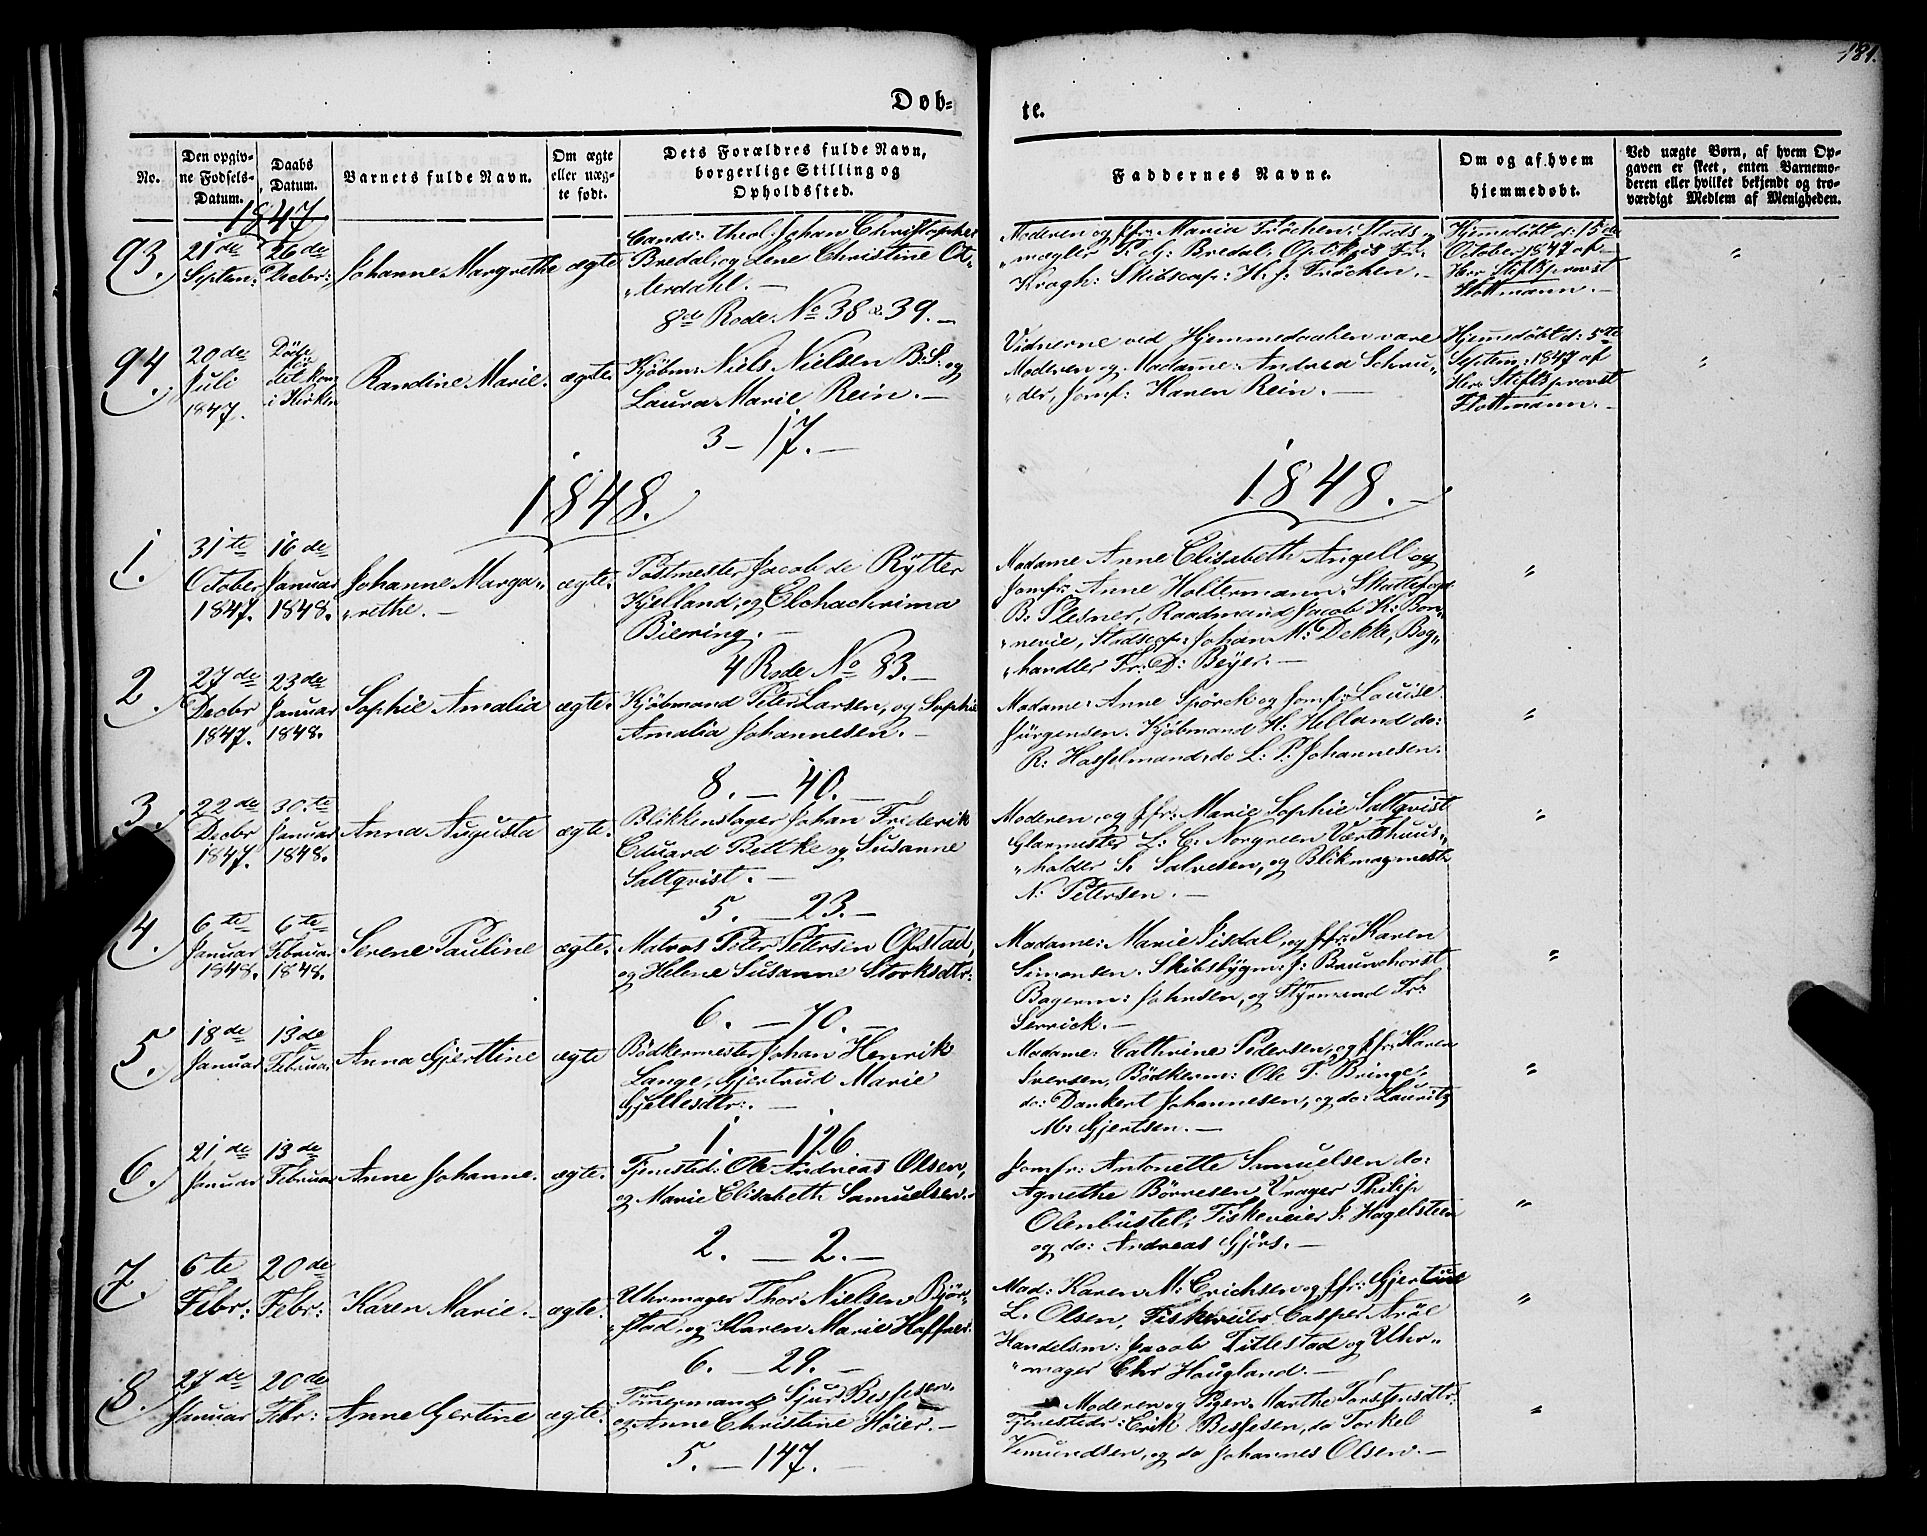 181.
Døb-
te.
No.
Den opgiv-
ne Fødsels-
Datum.
Daabs
Datum.
Barnets fulde Navn.
Om ægte
eller uæg-
te født.
Dets Forældres fulde Navn,
borgerlige Stilling og
Opholdssted.
Faddernes Navne.
Om og af hvem
hjemmedøbt.
Ved uægte Børn, af hvem Op-
gaven er skeet, enten Barnemo-
deren eller hvilket bekjendt og tro-
værdigt Medlem af Menigheden.
1847
93.
21de
Septem:
26de
Decbr:
Johanne Margrethe
ægte
Candi: theol: Johan Christopher
Bredal, og Lene Christine
dahl. —
8de Rode No 38 & 39. —
Moderen og Jfr: Maria Fröchen: Stads
mægler P. J: Bredal. Optikus Fr:
Krogh: Skibscap: H. J: Fröchen. —
Hjemedöbt d: 15de
October 1847 af
Herr Stiftsprovst
Flottmann. —
"
94.
20de
Juli
1847.
i Kirken
Randine Marie.
ægte.
Kjöbm: Niels Nielsen B:S: og
Laura Marie Rein. —
3 — 17. —
Vidnerne ved Hjemmedaaben vare
Moderen og Madame: Andrea Schrö„
„der, Jomf: Karen Rein. —
Hjemedöbt d: 5te
Septem: 1847 af
Herr Stiftsprovst
Flottmann. —
"
1848.
1848. —
1.
31te
October
1847.
16de
Januar
1848.
Johanne Marga„
„rethe. —
ægte.
Postmester Jacob de Rÿtter
Kjelland, og
Biering. —
4 Rode No 83. —
Madame Anne Elisabeth Angell og
Jomfr: Anne Holtermann. Skattefoged
B: Plesner, Raadmand Jacob K: Bon„
„nevie, Stadscap: Johan M: Dekke, Bog„
„handler Fr: D: Beÿer. —
"
2.
27de
Decbr
1847.
23de
Januar
1848.
Sophie Amalia
ægte.
Kjöbmand Peter Larsen, og Sophie
Amalia Johannesen. —
8. — 40. —
Madame: Anne Spörck og Jomfr: Louise
Jürgensen. Kjöbmand H: Helland do:
R: Hasselmand, do L: P: Johannesen.
"
3.
22de
Decbr
1847.
30te
Januar
1848.
Anna Augusta
ægte.
Blikkenslager Johan Friderik
Eduard Bettke og Susanne
Saltqvist. —
5. — 23. —
Moderen, og Jfr: Marie Sophie Saltqvist
Glarmester L: C: Norgreen Værtshuus„
„holder S: Salvesen, og
N: Petersen. —
"
4.
6te
Januar
1848.
6te
Februar
1848.
Serene Pauline
ægte.
Matros Peter Petersen Opstad,
og Helene Susanne
6. — 70. —
Madame: Marie Sisdal, og Jfr: Karen
Simonsen. Skibsbygm: J: Brunchorst
Bagerm: Johnsen, og Styrmand Fr:
Serrick. —
"
5.
18de
Januar
13de
Februar
Anna Gjerttine
ægte
Bödkermester Johan Henrik
Lange, Gjertrud Marie
Gjellesdtr: —
1. — 126.
Madame: Cathrine Pedersen, og Jfr: Karen
Iversen, Bödkerm: Ole T: Bringe,
do: Dankert Johannesen, og do: Lauritz
M: Gjertsen. —
"
6.
21de
Januar
13de
Februar
Anne Johanne.
ægte.
Tjenested: Ole Andreas Olsen,
og Marie Elisabeth Samuelsen. —
2. — 2. —
Jomfr: Antonette Samuelsen do:
Agnethe Börresen, Vrager Philip
Olenbüstel, Fiskeveier J: Hagelsteen
og do: Andreas Gjörs. —
"
7.
6te
Febr:
20de
Febr:
Karen Marie. —
ægte.
Uhrmager Thor Nielsen Björ„
„stad, og Karen Marie Haffner.
6. — 29. —
Mad: Karen M: Erichsen og Jfr: Gjertine
L: Olsen, Fiskeveier Casper
Handelsm: Jacob Titlestad og Uhr„
„mager Chr Haugland. —
"
8.
27de
Januar
20de
Febr:
Anne Gertine
ægte.
Timermand Sjur Bessesen
og Anne Christine Höier. —
5. — 147. —
Moderen og Pigen Marthe Torstensdtr:
Tjenestedr: Erik Bessesen, do Torkel
Vemundsen, og do Johannes Olsen. —
"